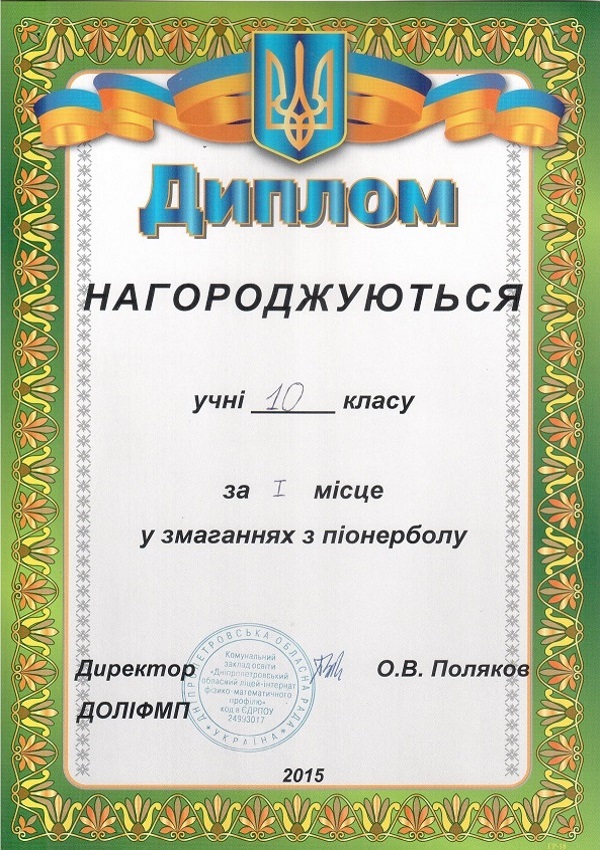 Диплом
НАГОРОДЖУЮТЬСЯ
учні 10 класу
за I місце
у змаганнях з піонерболу
Директор
О.В. Поляков
ДОЛІФМП
ДНІПРОПЕТРОВСЬКА ОБЛАСНА РАДА
Комунальний
заклад освіти
«Дніпропетровський
обласний ліцей-інтернат
фізико-математичного
профілю»
код в ЄДРПОУ
УКРАЇНА
2015